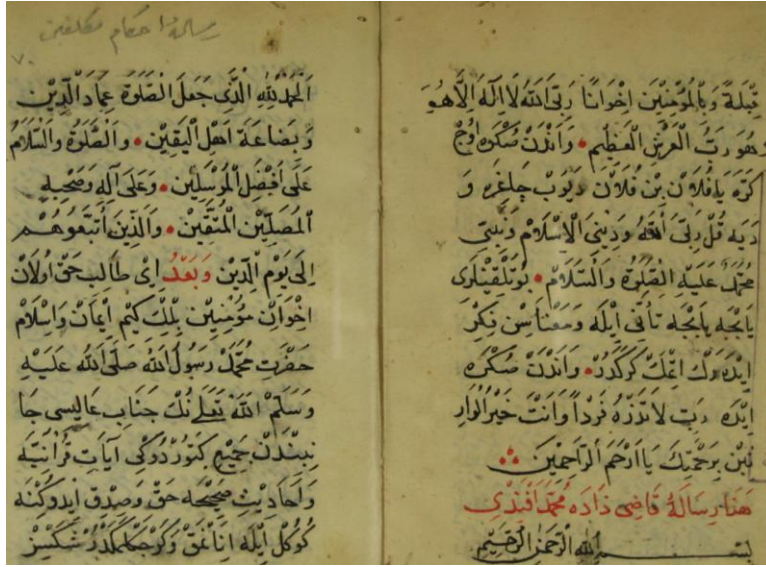 قِبْلَةً وَبِالْمُؤْمِنِينَ اِخْوَانًا رَبِّيَ اللّٰهُ لَا اِلٰهَ اِلَّا هُوَ
وَهُوَ رَبُّ الْعَرْشِ الْعَظِيمِ • وَآنْدَنْ صُكْرَه اُوجْ
كَرَّه يَا فُلَانْ بِنْ فُلَانْ دَيُوبْ چَاغِرَه وَ
دِيَه قُلْ رَبِّيَ اللّٰهُ وَدِينِيَ الْاِسْلَامُ وَنَبِيِّي
مُحَمَّدٌ عَلَيْهِ الصَّلٰوةُ وَالسَّلَامُ • بُو تَلْقِينْلَرِى
يَابَجَه يَابَجَه تَأَنِّى اَيْلَه وَمَعْنَاسِنْ فِكِرْ
اِيدَه رَكْ اِتْمَكْ كَرَكْدُرْ • وَآنْدَنْ صُكْرَه
اِيدَه رَبِّ لَا تَذَرْهُ فَرْدًا وَاَنْتَ خَيْرُ الْوَارِ
ثِينَ بِرَحْمَتِكَ يَا اَرْحَمَ الرَّاحِمِينَ
هَذَا رِسَالَهٔ قَاضِى زَادَه مُحَمَّدْ اَفَنْدِى
بِسْمِ اللّٰهِ الرَّحْمٰنِ الرَّحِيمِ
رسالهٔ احكام مكلفين
اَلْحَمْدُ لِلّٰهِ الَّذِى جَعَلَ الصَّلٰوةَ عِمَادَ الدِّينِ
وَبِضَاعَةَ اَهْلِ الْيَقِينِ • وَالصَّلٰوةُ وَالسَّلَامُ
عَلَى اَفْضَلِ الْمُرْسَلِينَ • وَعَلَى آلِهِ وَصَحْبِهِ
الْمُصَلِّينَ الْمُتَّقِينَ • وَالَّذِينَ اتَّبَعُوهُمْ
اِلَى يَوْمِ الدِّينِ وَبَعْدُ اِىْ طَالِبِ حَقْ اُولَانْ
اِخْوَانِ مُؤْمِنِينْ بِلْكِ كِيمْ اِيمَانْ وَاِسْلَامْ
حَضْرَتِ مُحَمَّدْ رَسُولُ اللّٰه صَلَّى اللّٰهُ عَلَيْهِ
وَسَلَّمْ اللّٰهُ تَعَالٰى نُكْ جَنَابِ عَالِيسِى جَا
نِبِنْدَنْ جَمِيعِ كَتُورْدُوكِى آيَاتِ قُرْآنِيَّه
وَاَحَادِيثِ صَحِيحَه حَقْ وَصِدْقْ اِيدُوكُنَه
كُوكُلْ اَيْلَه اِنَانْمَقْ وَكَرْجَكْلَمَكْدُرْ شَكْسِزْ